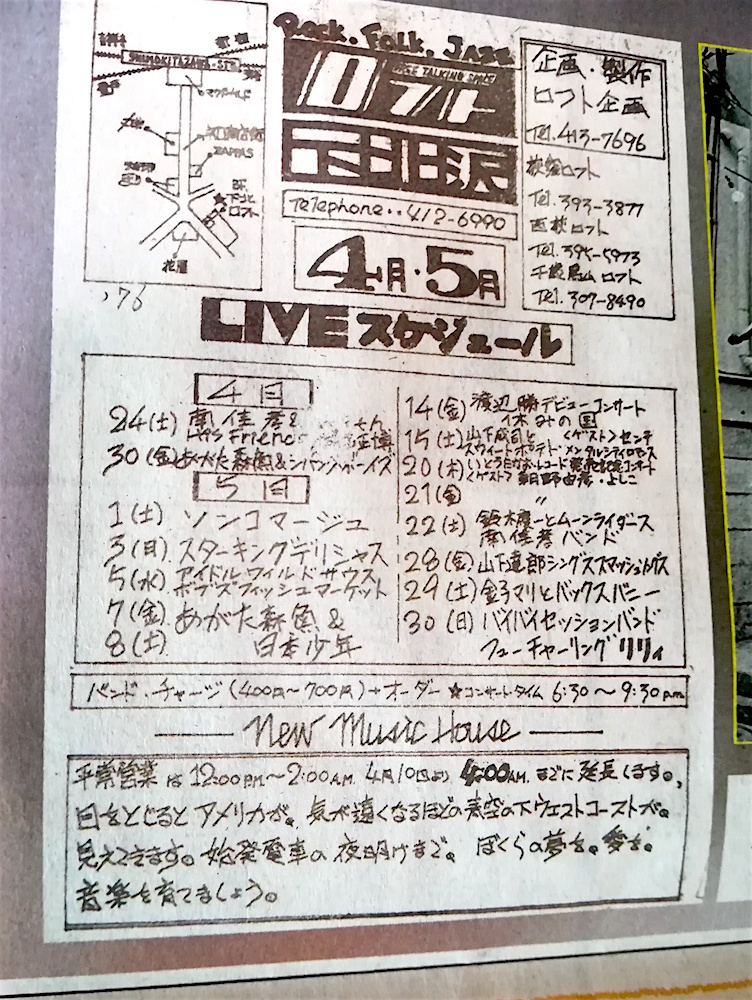 Rock, Folk, JAZZ
FREE TALKING SPACE
ロフト
下北沢
Telephone・・412-6990
4月・5月
SHIMOKITAZAWA-ST
マクドナルド
ZAPPAS
下北
ロフト
花屋
企画・製作
ロフト企画
Tel. 413-7696
荻窪ロフト
Tel. 393-3877
西荻ロフト
Tel. 395-5973
千歳烏山ロフト
Tel. 307-8490
'76
LIVEスケジュール
4月
24(土) 南佳孝&
His Friend
30(金)あがた森魚&シバ
5月
1(土) ソンコマージュ
3(日) スターキングデリシャス
5(水) アイドルワイルドサウス
ボブズフィッシュマーケット
7(金) あがた森魚&
8(土) 日本少年
14(金) 渡辺勝デビューコンサート
休みの国
15(土) 山下成司と <ゲスト>センチ
スウィートポテト・メンタルシティロマンス
20(木) いとうたかおレコード発売記念コンサート
<ゲスト> 朝野由彦・よしこ
21(金) 〃
22(土) 鈴木慶一とムーンライダース
南佳孝バンド
28(金) 山下達郎シングス
29(土) 金子マリとバックスバニー
30(日) バイバイセッションバンド
フューチャーリングリリィ
バンド・チャージ(400円〜700円)+オーダー ★コンサートタイム 6:30〜9:30pm
New Music House
平常営業は12:00PM〜2:00AM 4月10日より4:00AM.までに延長します。
目をとじるとアメリカが。気が遠くなるほどの青空の下ウェストコーストが。
見えてきます。始発電車の夜明けまで。ぼくらの夢を。愛を。
音楽を育てましょう。